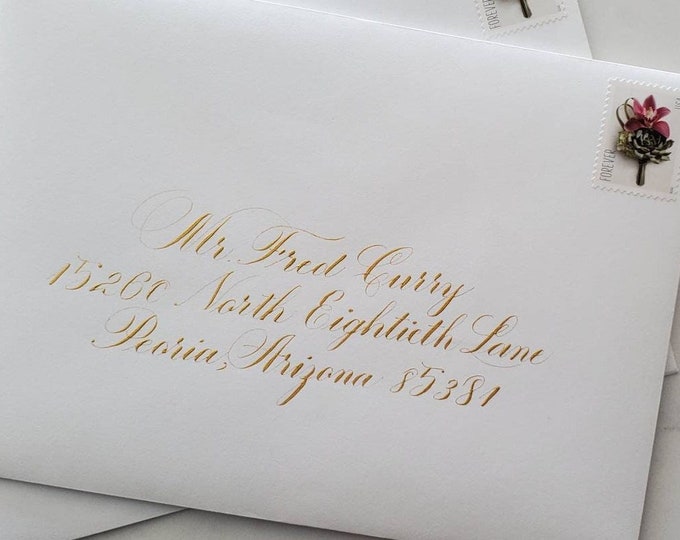 FOREVER
FOREVER
USA
Mr. Fred Curry
15260 North Eightieth Lane
Peoria, Arizona 85381